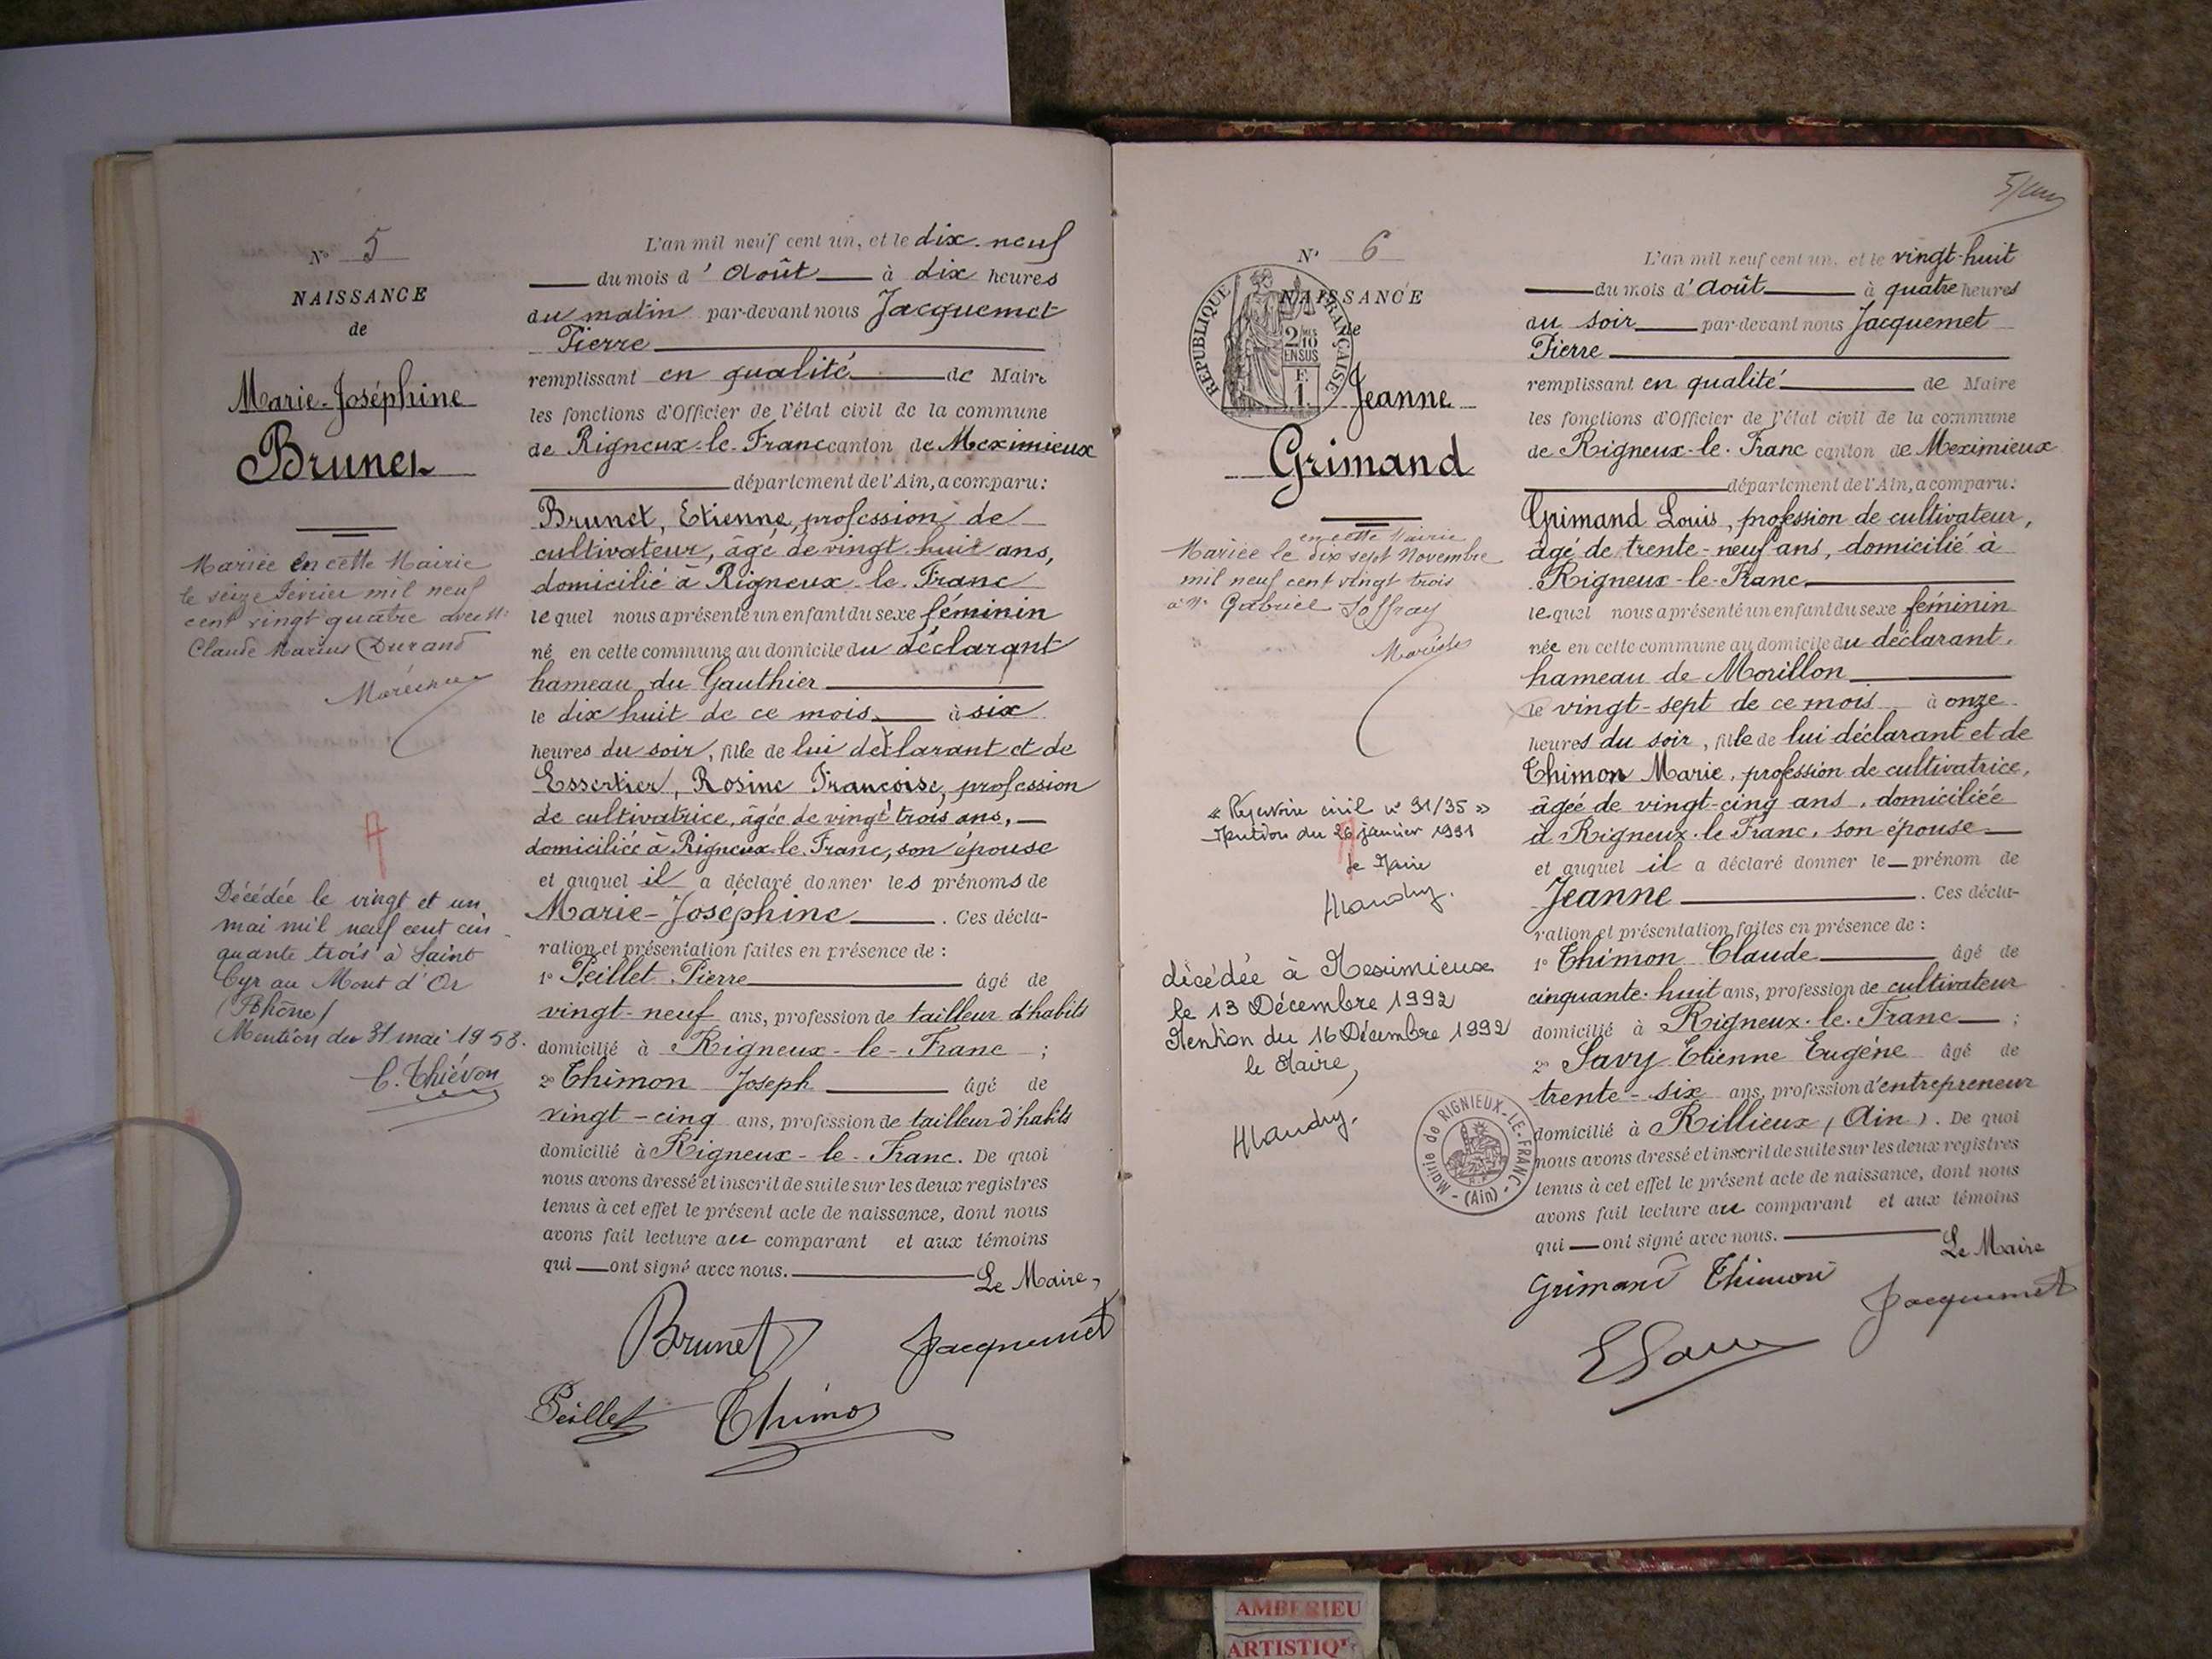 N° 5
NAISSANCE
de
Marie-Joséphine
Brunet
Mariée en cette Mairie
le seize Février mil neuf
cent vingt quatre avec Mr
Claude Marius Durand
Décédée le vingt et un
mai mil neuf cent cin
quante trois à Saint
Cyr au Mont d'Or
(Rhône)
Mention du 31 mai 1953.
C. Thiévon
L'an mil neuf cent un, et le dix-neuf
du mois d'Août à dix heures
du matin par-devant nous Jacquemet
Pierre
remplissant en qualité de Maire
les fonctions d'Officier de l'état civil de la commune
de Rigneux-le-Franc canton de Meximieux
département de l'Ain, a comparu:
Brunet, Etienne, profession de
cultivateur, âgé de vingt-huit ans,
domicilié à Rigneux-le-Franc
lequel nous a présenté un enfant du sexe féminin
né en cette commune au domicile du déclarant
hameau du Gauthier
le dix huit de ce mois, à six
heures du soir, fille de lui déclarant et de
Essertier, Rosine Françoise, profession
de cultivatrice, âgée de vingt trois ans,
domiciliée à Rigneux-le-Franc, son épouse
et auquel il a déclaré donner les prénoms de
Marie-Joséphine. Ces décla-
ration et présentation faites en présence de :
1° Peillet Pierre âgé de
vingt-neuf ans, profession de tailleur d'habits
domicilié à Rigneux-le-Franc ;
2° Thimon Joseph âgé de
vingt-cinq ans, profession de tailleur d'habits
domicilié à Rigneux-le-Franc. De quoi
nous avons dressé et inscrit de suite sur les deux registres
tenus à cet effet le présent acte de naissance, dont nous
avons fait lecture au comparant et aux témoins
qui ont signé avec nous.
Le Maire,
Brunet Jacquemet
Peillet Thimon
N° 6
NAISSANCE
de
RÉPUBLIQUE FRANÇAISE
2/10
EN SUS
F.
1.
Jeanne
Grimand
en cette Mairie
Mariée le dix sept Novembre
mil neuf cent vingt trois
à Mr Gabriel Joffray
« Répertoire civil n° 91/35 »
Mention du 26 janvier 1991
le Maire
décédée à Meximieux
le 13 Décembre 1992
Mention du 16 Décembre 1992
le Maire,
Mairie de RIGNIEUX-LE-FRANC - (Ain) -
L'an mil neuf cent un, et le vingt-huit
du mois d'Août à quatre heures
du soir par-devant nous Jacquemet
Pierre
remplissant en qualité de Maire
les fonctions d'Officier de l'état civil de la commune
de Rigneux-le-Franc canton de Meximieux
département de l'Ain, a comparu:
Grimand Louis, profession de cultivateur,
âgé de trente-neuf ans, domicilié à
Rigneux-le-Franc
lequel nous a présenté un enfant du sexe féminin
née en cette commune au domicile du déclarant,
hameau de Morillon
le vingt-sept de ce mois à onze
heures du soir, fille de lui déclarant et de
Thimon Marie, profession de cultivatrice,
âgée de vingt-cinq ans, domiciliée
à Rigneux-le-Franc, son épouse
et auquel il a déclaré donner le prénom de
Jeanne. Ces décla-
ration et présentation faites en présence de :
1° Thimon Claude âgé de
cinquante-huit ans, profession de cultivateur
domicilié à Rigneux-le-Franc ;
2° Savy Etienne Eugène âgé de
trente-six ans, profession d'entrepreneur
domicilié à Rillieux (Ain). De quoi
nous avons dressé et inscrit de suite sur les deux registres
tenus à cet effet le présent acte de naissance, dont nous
avons fait lecture au comparant et aux témoins
qui ont signé avec nous.
Le Maire
Grimand Thimon Jacquemet
AMBERIEU
ARTISTIQ